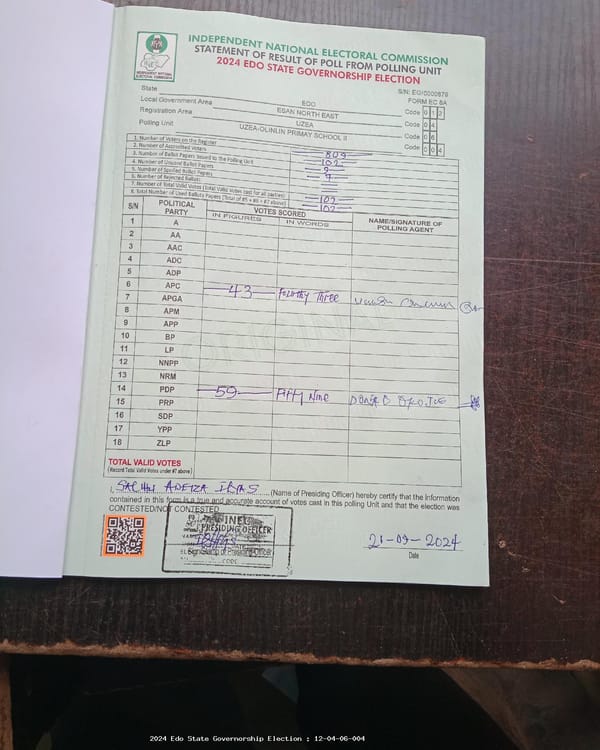 INDEPENDENT NATIONAL ELECTORAL COMMISSION
STATEMENT OF RESULT OF POLL FROM POLLING UNIT
2024 EDO STATE GOVERNORSHIP ELECTION
INDEPENDENT NATIONAL ELECTORAL COMMISSION
FORM EC 8A
State EDO Code 012
Local Government Area ESAN NORTH EAST Code 04
Registration Area UZEA Code 06
Polling Unit UZEA-OLINLIN PRIMAY SCHOOL II Code 004
1. Number of Voters on the Register 809
2. Number of Accredited Voters 102
3. Number of Ballot Papers Issued to the Polling Unit
4. Number of Unused Ballot Papers
5. Number of Spoiled Ballot Papers
6. Number of Rejected Ballots
7. Number of Total Valid Votes (Total Valid Votes cast for all parties) 102
8. Total Number of Used Ballots Papers (Total of #5 + #6 + #7 above) 102
S/N POLITICAL PARTY VOTES SCORED NAME/SIGNATURE OF POLLING AGENT
IN FIGURES IN WORDS
1 A
2 AA
3 AAC
4 ADC
5 ADP
6 APC 43 Three
7 APGA
8 APM
9 APP
10 BP
11 LP
12 NNPP
13 NRM
14 PDP 59 Fifty Nine
15 PRP
16 SDP
17 YPP
18 ZLP
TOTAL VALID VOTES
(Record Total Valid Votes under #7 above)
I, (Name of Presiding Officer) hereby certify that the information
contained in this form is a true and accurate account of votes cast in this polling Unit and that the election was
CONTESTED/NOT CONTESTED
INEC
PRESIDING OFFICER
21-09-2024
Date
2024 Edo State Governorship Election : 12-04-06-004